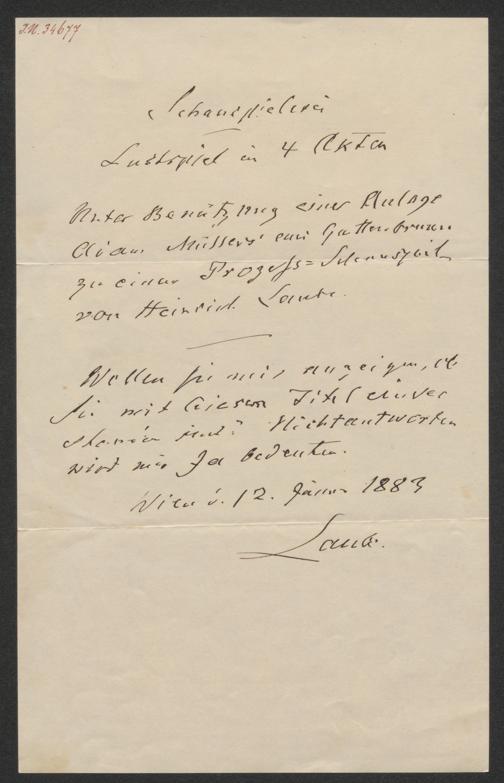 I.N. 34677
Schauspielerei
Lustspiel in 4 Akten
Unter Benützung einer Anlage
Adam Müllers aus Guttenbrunn
zu einem Prozeß=Schauspiel
von Heinrich Laube.
Wollen Sie mir anzeigen, ob
Sie mit diesem Titel einver
standen sind? Nichtantworten
wird mir Ja bedeuten.
Wien d. 12. Jänner 1883
Laube.